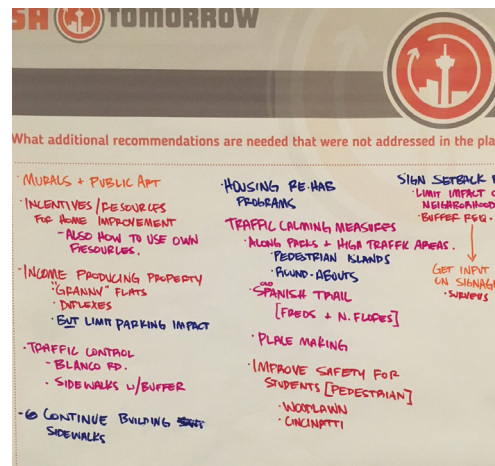 SA TOMORROW
What additional recommendations are needed that were not addressed in the pla
· MURALS + PUBLIC ART
· INCENTIVES/RESOURCES
FOR HOME IMPROVEMENT
- ALSO HOW TO USE OWN
RESOURCES.
· INCOME PRODUCING PROPERTY
"GRANNY" FLATS
· DUPLEXES
· BUT LIMIT PARKING IMPACT
· TRAFFIC CONTROL
- BLANCO RD.
- SIDEWALKS W/BUFFER
- CONTINUE BUILDING
SIDEWALKS
· HOUSING RE-HAB
PROGRAMS
TRAFFIC CALMING MEASURES
· ALONG PARKS + HIGH TRAFFIC AREAS.
· PEDESTRIAN ISLANDS
· ROUND-ABOUTS
· OLD SPANISH TRAIL
[FREDS + N. FLORES]
· PLACE MAKING
· IMPROVE SAFETY FOR
STUDENTS [PEDESTRIAN]
· WOODLAWN
· CINCINATTI
SIGN SETBACK
· LIMIT IMPACT
NEIGHBORHOOD
· BUFFER REQ.
GET INPUT
ON SIGNAG
· SURVEYS